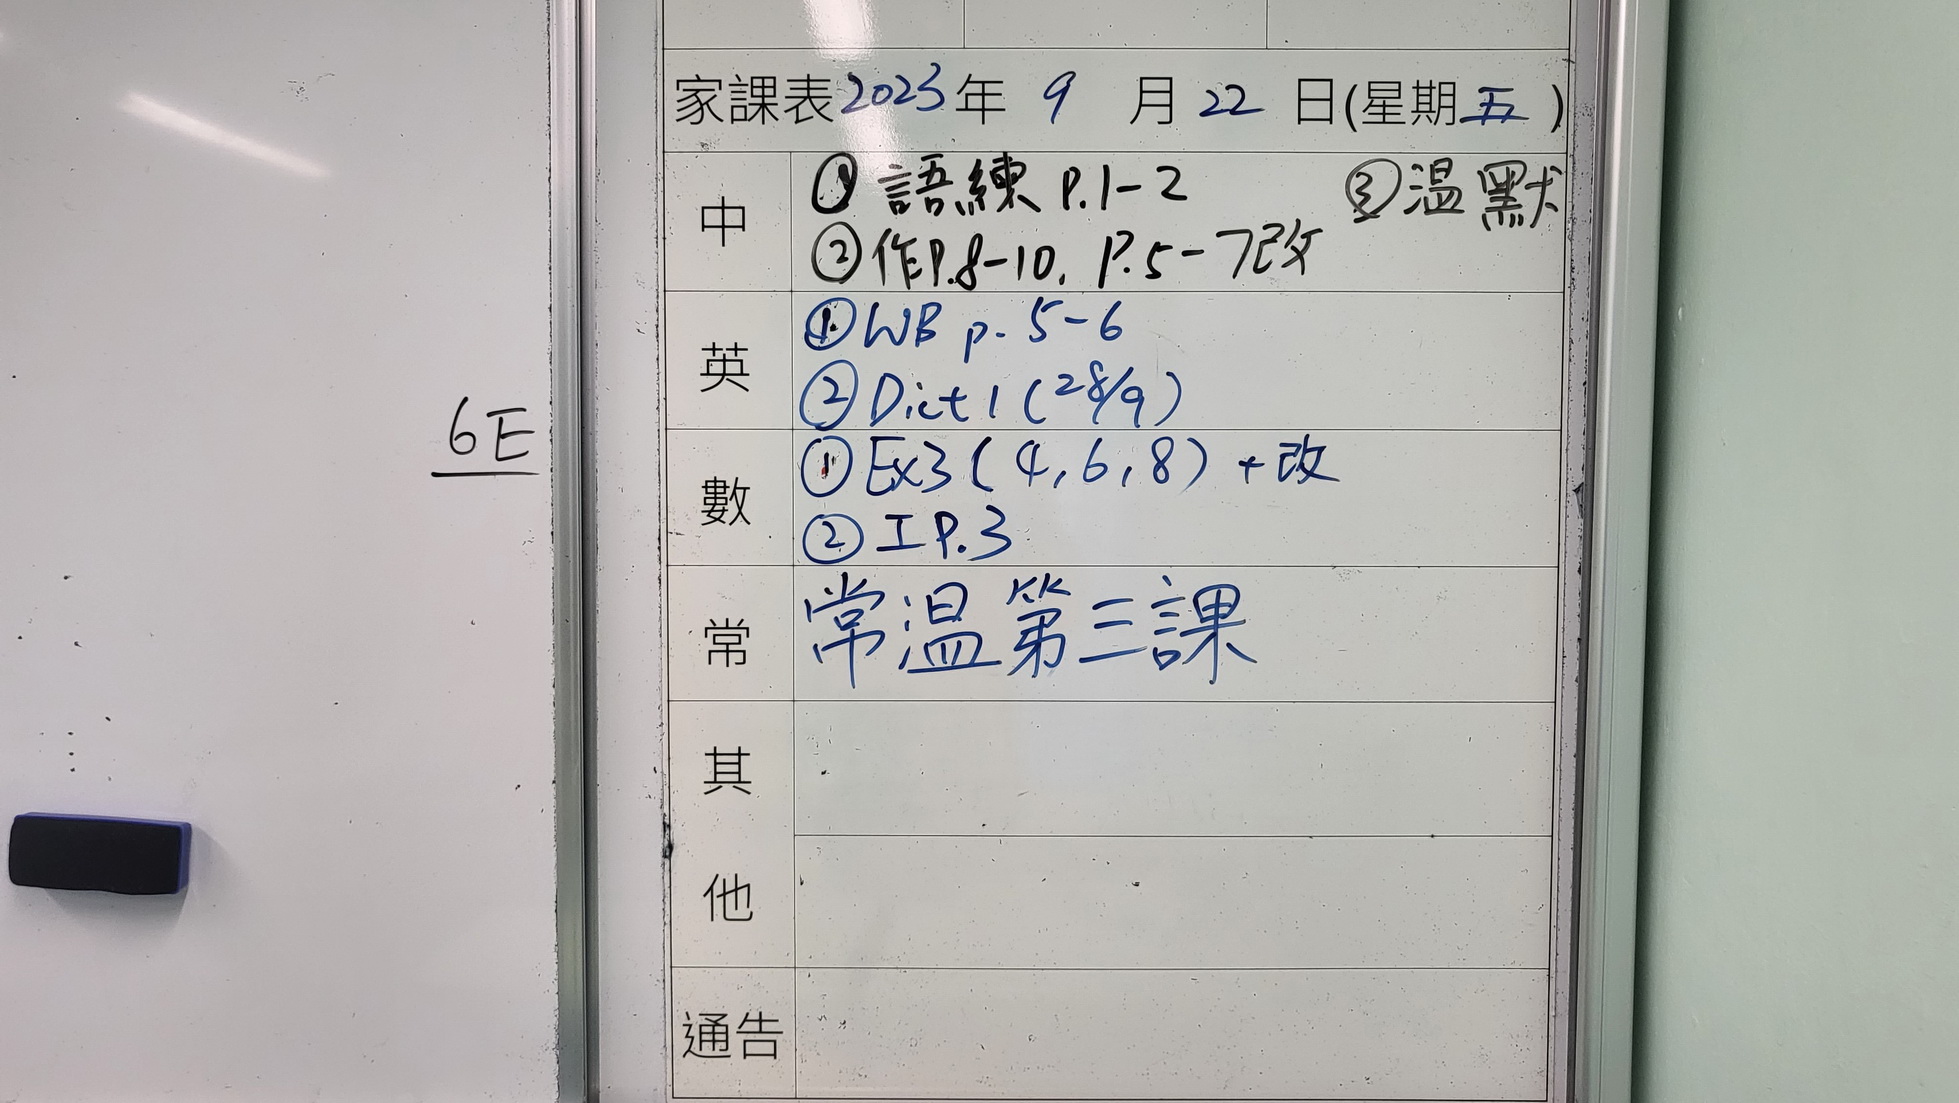 家課表2023年 9 月 22 日(星期五)
中
① 語練 P.1-2 ③溫默
②作P.8-10, P.5-7改
英
①WB p. 5-6
②Dict 1 (28/9)
數
①Ex3 (4,6,8) +改
②工P.3
常
常溫第三課
其
他
通告
6E